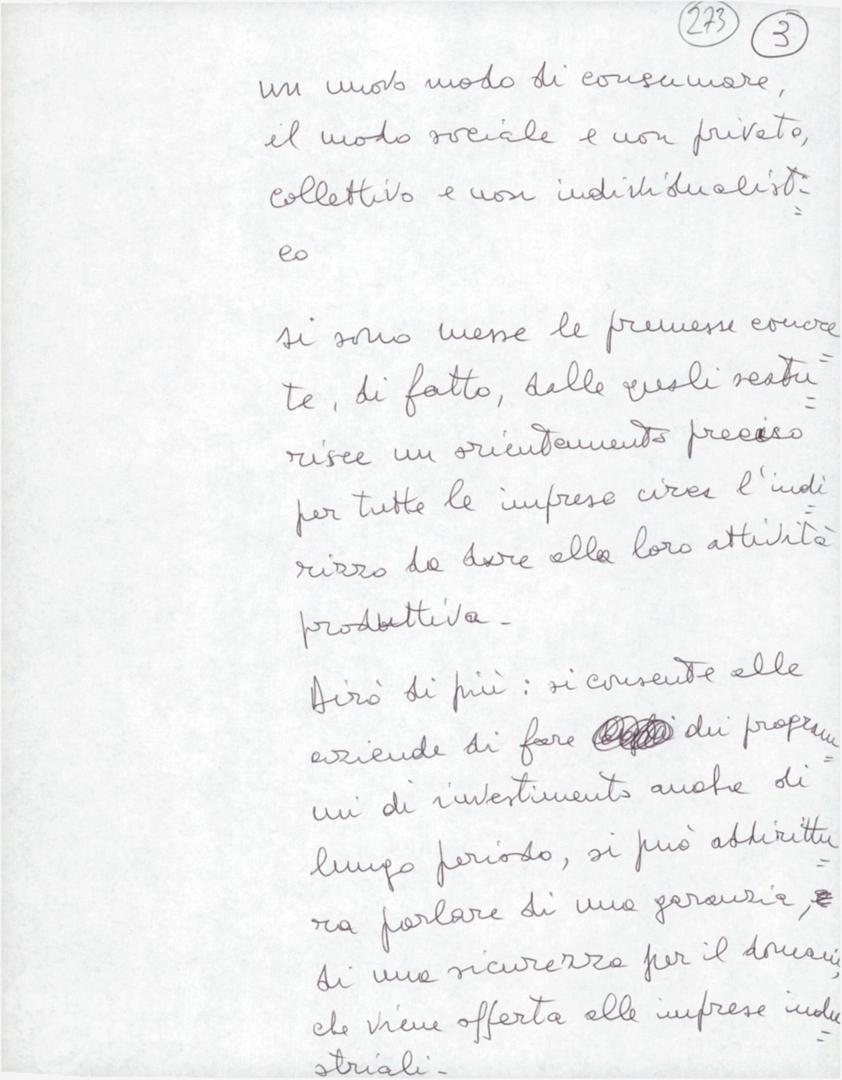 273 3
un nuovo modo di consumare,
il modo sociale e non privato,
collettivo e non individualist=
co
si sono messe le premesse concre=
te, di fatto, dalle quali scatu=
risce un orientamento preciso
per tutte le imprese circa l'indi=
rizzo da dare alla loro attività
produttiva -
Dirò di più : si consente alle
aziende di fare dei program=
mi di investimento anche di
lungo periodo, si può addirittu=
ra parlare di una garanzia,
di una sicurezza per il domani,
che viene offerta alle imprese indu=
striali -